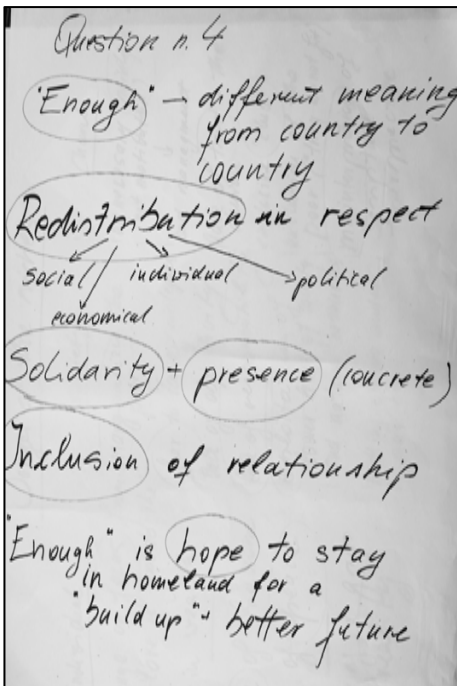 Question n. 4
"Enough" – different meaning
from country to
country
Redistribution in respect
social individual political
economical
Solidarity + presence (concrete)
Inclusion of relationship
"Enough" is hope to stay
in homeland for a
"build up" better future